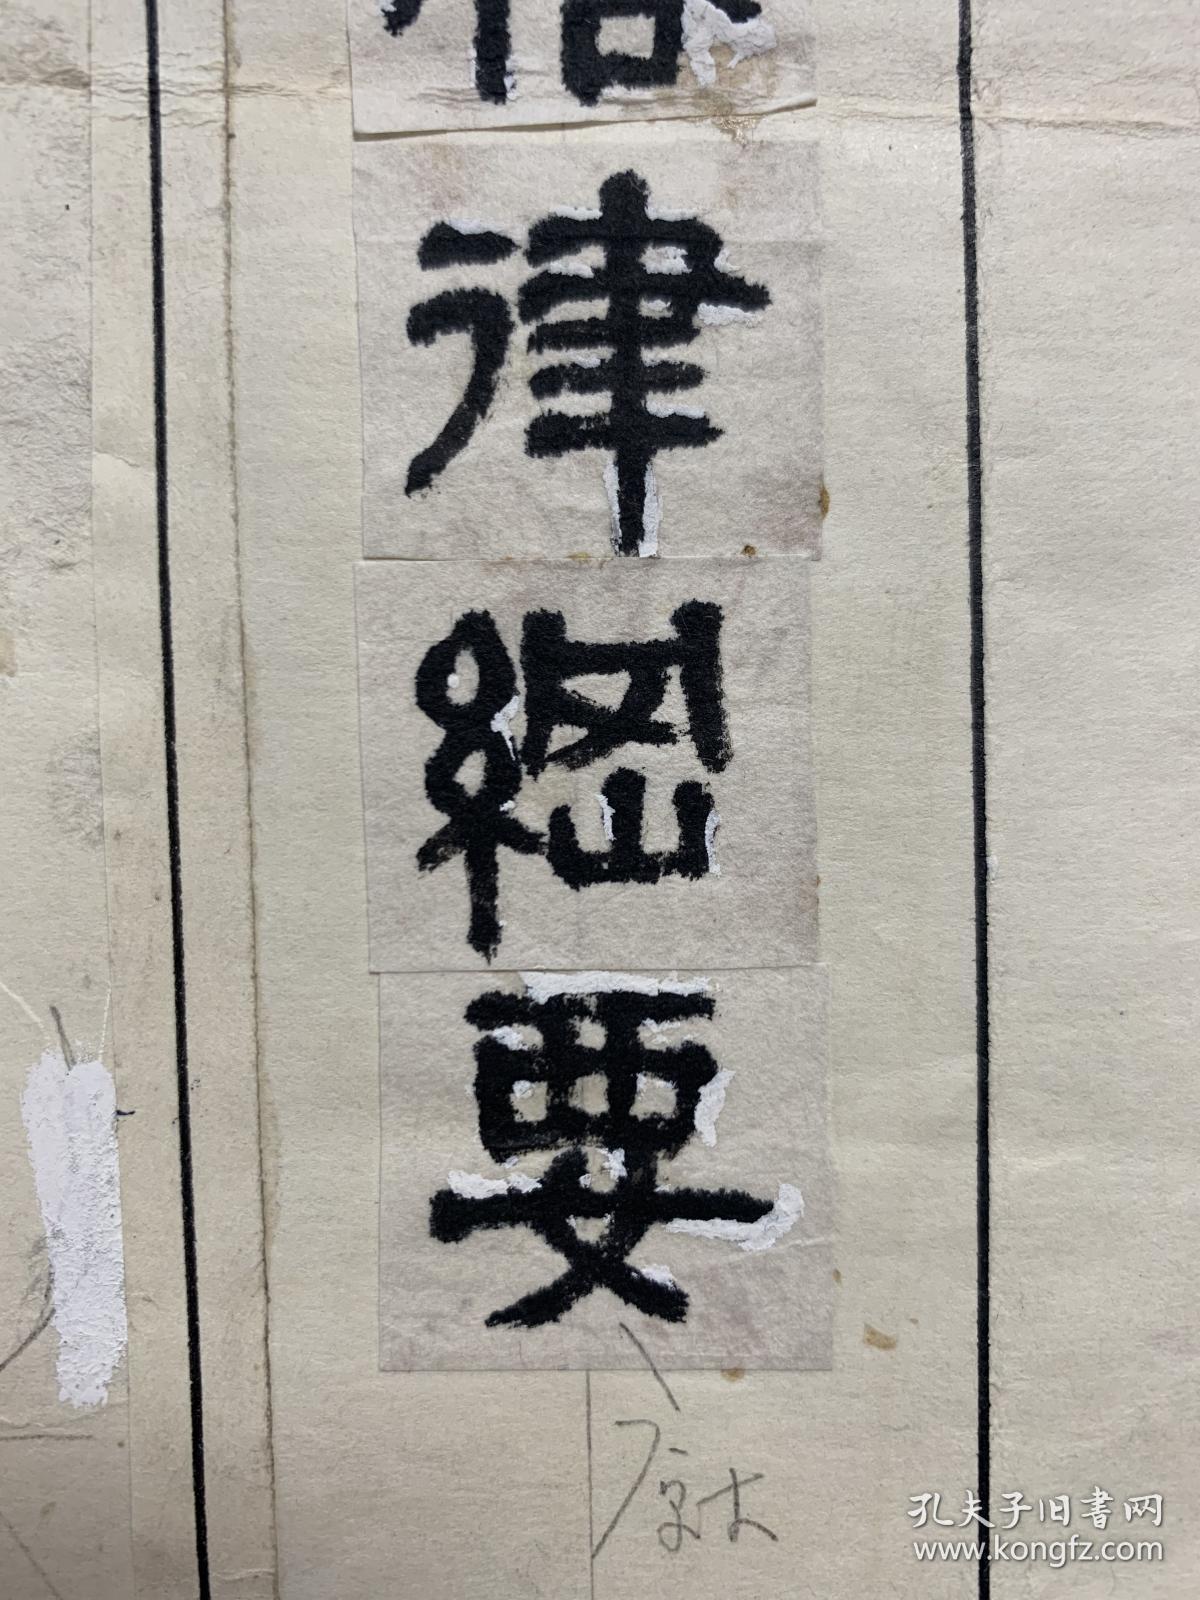 律
綱
要
孔夫子旧書网
www.kongfz.com